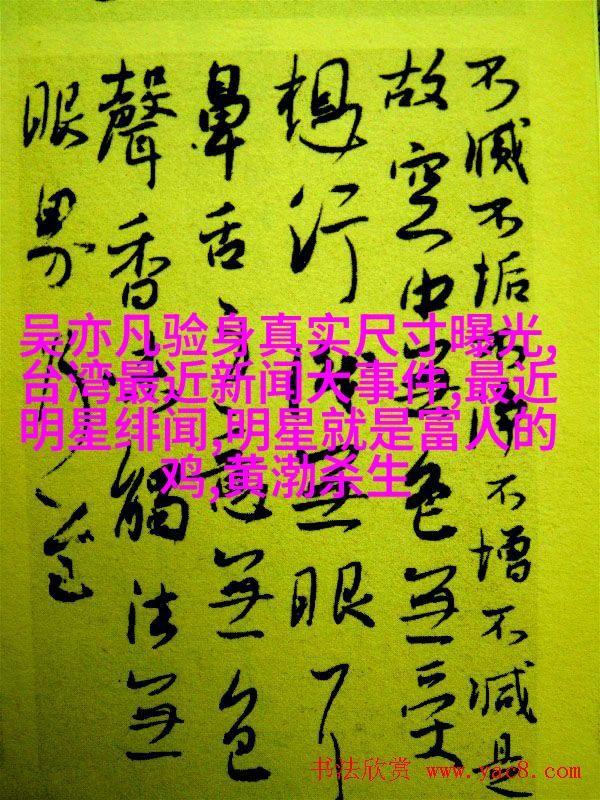 不滅不垢不淨不增不減是
故空中無色無受
想行識無眼耳
鼻舌身意無色
聲香味觸法無
眼界乃至
吴亦凡验身真实尺寸曝光,
台湾最近新闻大事件,最近
明星绯闻,明星就是富人的
鸡,黄渤杀生
书法欣赏 www.yac8.com